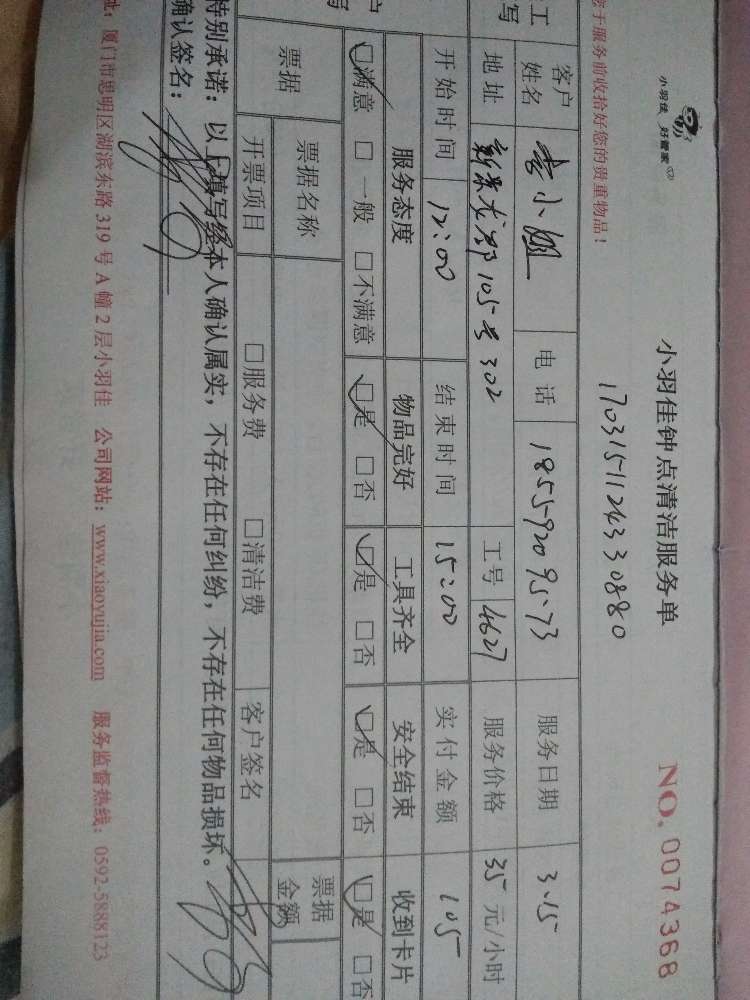 小羽佳 好管家
小羽佳钟点清洁服务单
NO. 0074368
1703151124330880
于服务前收拾好您的贵重物品！
工 客户姓名 李小姐 电话 18559209573 服务日期 3.15
写 地址 新景龙郡105号302 工号 4627 服务价格 35 元/小时
开始时间 12:00 结束时间 15:00 实付金额 105
户 服务态度 物品完好 工具齐全 安全结束 收到卡片
写 ☑满意 □一般 □不满意 ☑是 □否 ☑是 □否 ☑是 □否 ☑是 □否
票据 票据名称 票据金额
开票项目 □服务费 □清洁费 客户签名
特别承诺：以上填写经本人确认属实，不存在任何纠纷，不存在任何物品损坏。
确认签名：
址：厦门市思明区湖滨东路319号A幢2层小羽佳 公司网站：www.xiaoyujia.com 服务监督热线：0592-5888123